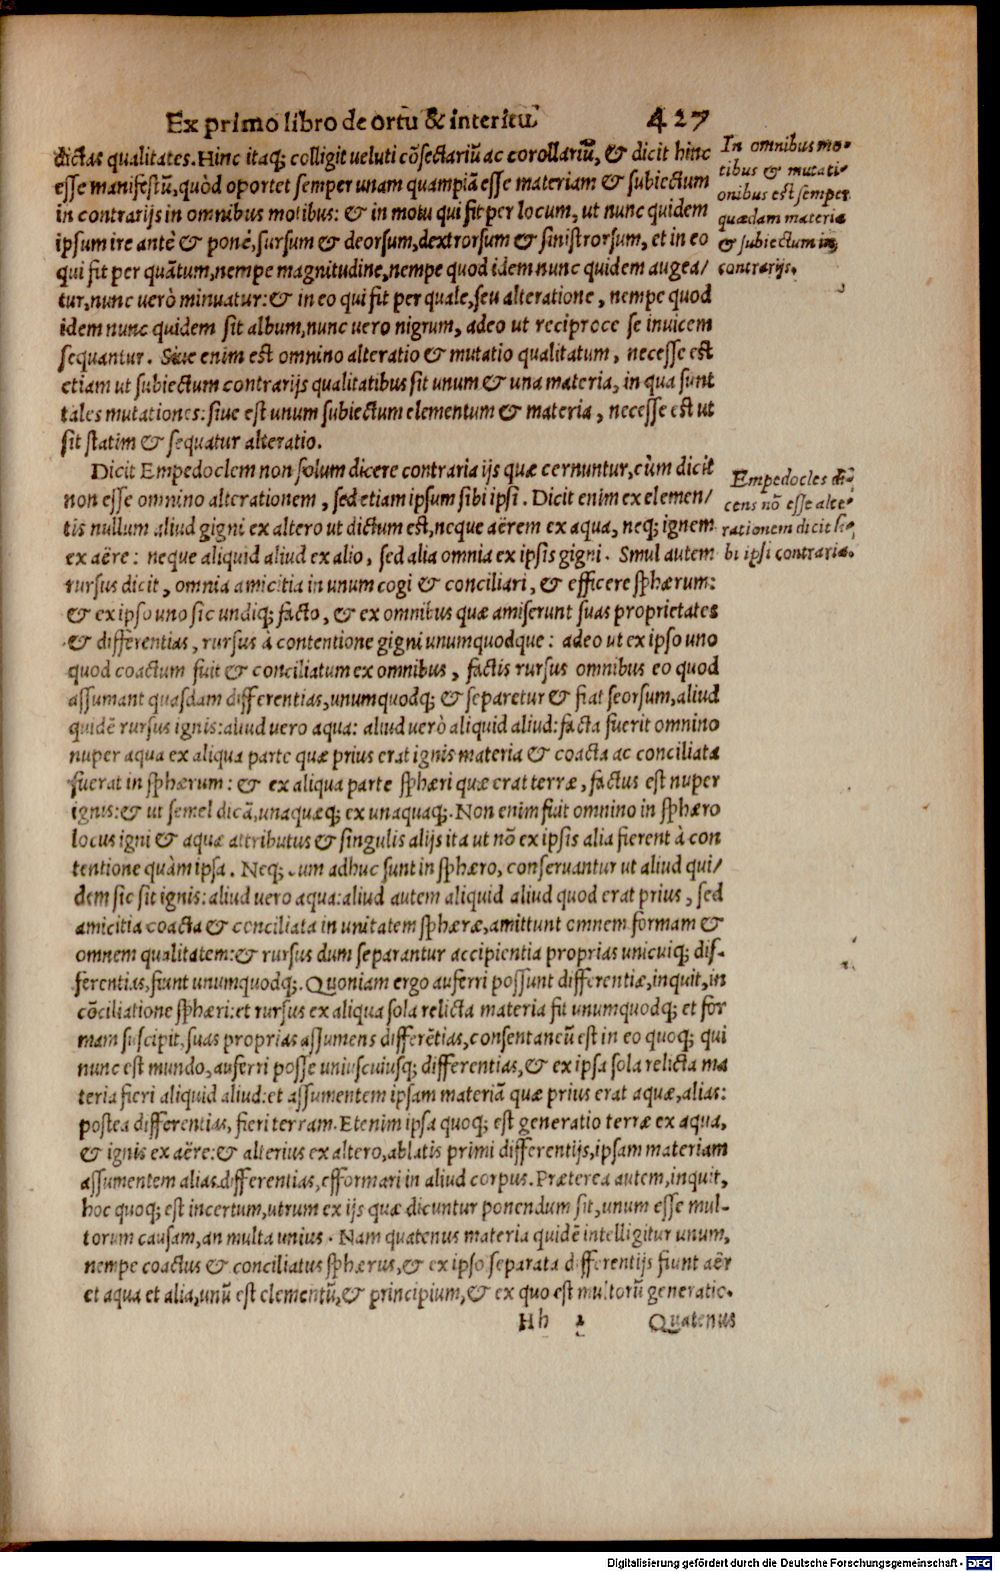 Ex primo libro de ortu & interitu 427
dictas qualitates. Hinc itaq; colligit veluti cõsectariũ ac corollariũ, & dicit hinc
esse manifestũ, quòd oportet semper unam quampiã esse materiam & subiectum
in contrarijs in omnibus motibus: & in motu qui fit per locum, ut nunc quidem
ipsum ire antè & ponè, sursum & deorsum, dextrorsum & sinistrorsum, et in eo
qui fit per quãtum, nempe magnitudine, nempe quod idem nunc quidem augea/
tur, nunc verò minuatur: & in eo qui fit per quale, seu alteratione, nempe quod
idem nunc quidem sit album, nunc vero nigrum, adeo ut reciproce se invicem
sequantur. Sive enim est omnino alteratio & mutatio qualitatum, necesse est
etiam ut subiectum contrarijs qualitatibus sit unum & una materia, in qua sunt
tales mutationes: sive est unum subiectum elementum & materia, necesse est ut
sit statim & sequatur alteratio.
In omnibus mo-
tibus & mutati-
onibus est semper
quædam materia
& subiectum in
contrarijs.
Dicit Empedoclem non solum dicere contraria ijs quæ cernuntur, cùm dicit
non esse omnino alterationem, sed etiam ipsum sibi ipsi. Dicit enim ex elemen/
tis nullum aliud gigni ex altero ut dictum est, neque aërem ex aqua, neq; ignem
ex aëre: neque aliquid aliud ex alio, sed alia omnia ex ipsis gigni. Smul autem
rursus dicit, omnia amicitia in unum cogi & conciliari, & efficere sphærum:
& ex ipso uno sic undiq; facto, & ex omnibus quæ amiserunt suas proprietates
& differentias, rursus à contentione gigni unumquodque: adeo ut ex ipso uno
quod coactum fuit & conciliatum ex omnibus, factis rursus omnibus eo quod
assumant quasdam differentias, unumquodq; & separetur & fiat seorsum, aliud
quidẽ rursus ignis: aliud vero aqua: aliud verò aliquid aliud: facta fuerit omnino
nuper aqua ex aliqua parte quæ prius erat ignis materia & coacta ac conciliata
fuerat in sphærum: & ex aliqua parte sphæri quæ erat terræ, factus est nuper
ignis: & ut semel dicã, unaquæq; ex unaquaq;. Non enim fiat omnino in sphæro
locus igni & aquæ attributus & singulis alijs ita ut nõ ex ipsis alia fierent à con
tentione quàm ipsa. Neq; cum adhuc sunt in sphæro, conservantur ut aliud qui/
dem sic sit ignis: aliud vero aqua: aliud autem aliquid aliud quod erat prius, sed
amicitia coacta & conciliata in unitatem sphæræ, amittunt omnem formam &
omnem qualitatem: & rursus dum separantur accipientia proprias unicuiq; dif-
ferentias, fiunt unumquodq;. Quoniam ergo auferri possunt differentiæ, inquit, in
cõciliatione sphæri: et rursus ex aliqua sola relicta materia fit unumquodq; et for
mam suscipit, suas proprias assumens differẽtias, consentaneũ est in eo quoq; qui
nunc est mundo, auferri posse uniuscuiusq; differentias, & ex ipsa sola relicta ma
teria fieri aliquid aliud: et assumentem ipsam materiã quæ prius erat aquæ, alias:
postea differentias, fieri terram. Etenim ipsa quoq; est generatio terræ ex aqua,
& ignis ex aëre: & alterius ex altero, ablatis primi differentijs, ipsam materiam
assumentem alias differentias, efformari in aliud corpus. Præterea autem, inquit,
hoc quoq; est incertum, utrum ex ijs quæ dicuntur ponendum sit, unum esse mul-
torum causam, an multa unius. Nam quatenus materia quidẽ intelligitur unum,
nempe coactus & conciliatus sphærus, & ex ipso separata differentijs fiunt aër
et aqua et alia, unũ est elementũ, & principium, & ex quo est multorũ generatio.
Empedocles di-
cens nõ esse alte-
rationem dicit si-
bi ipsi contraria.
Hh 2 Quatenus
Digitalisierung gefördert durch die Deutsche Forschungsgemeinschaft - DFG